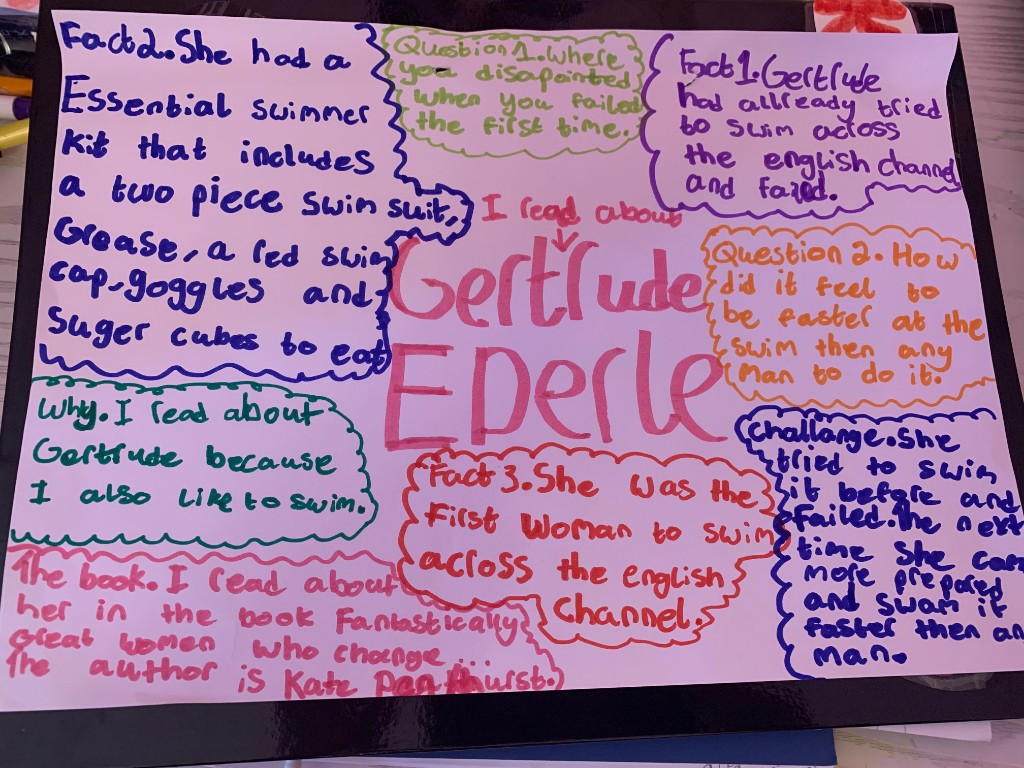 Fact2.She had a
Essential swimmer
Kit that includes
a two piece swim suit,
Grease, a red swim
cap, goggles and
suger cubes to eat
Question 1.Where
you disapointed
when you failed
the first time.
Fact1.Gertrude
had allready tried
to swim across
the english channel
and failed.
I read about
Gertrude
Ederle
Question 2. How
did it feel to
be faster at the
swim then any
Man to do it.
Why. I read about
Gertrude because
I also like to swim.
Fact 3.She was the
First Woman to swim
across the english
Channel.
challange.she
tried to swim
it before and
Failed.The next
time she cam
more prepared
and swam it
faster then an
man.
The book. I read about
her in the book Fantastically
Great women who change
The author is Kate Pankhurst.